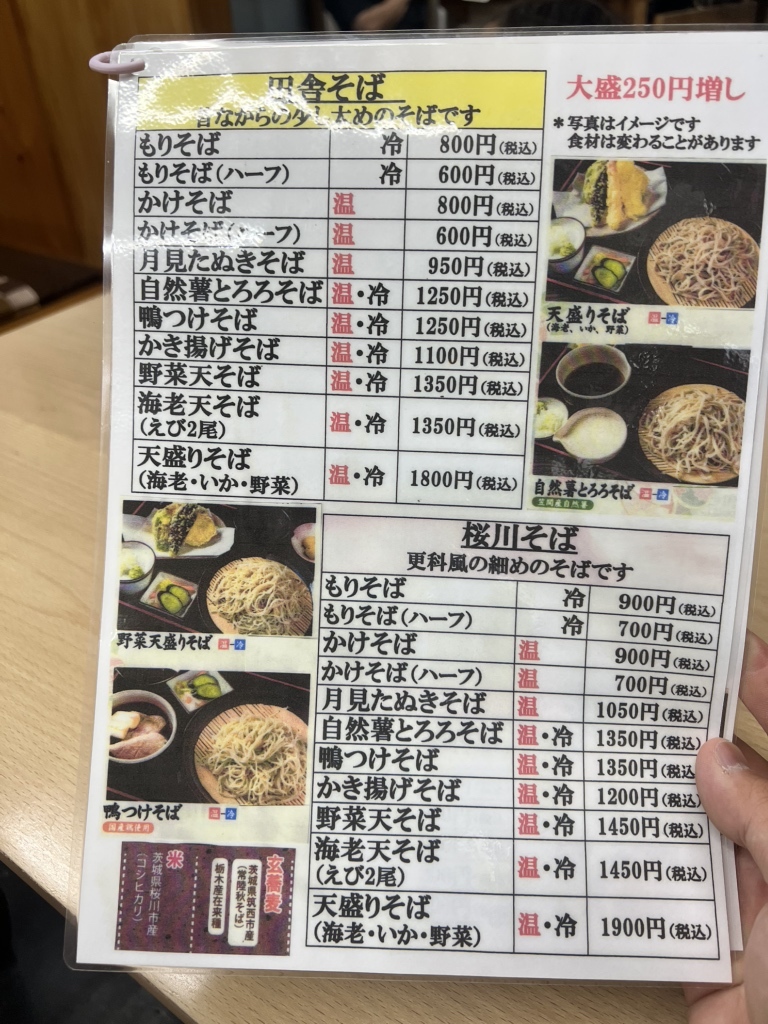 田舎そば
昔ながらの少し太めのそばです
もりそば 冷 800円(税込)
もりそば(ハーフ) 冷 600円(税込)
かけそば 温 800円(税込)
かけそば(ハーフ) 温 600円(税込)
月見たぬきそば 温 950円(税込)
自然薯とろろそば 温・冷 1250円(税込)
鴨つけそば 温・冷 1250円(税込)
かき揚げそば 温・冷 1100円(税込)
野菜天そば 温・冷 1350円(税込)
海老天そば
(えび2尾) 温・冷 1350円(税込)
天盛りそば
(海老・いか・野菜) 温・冷 1800円(税込)
大盛250円増し
*写真はイメージです
食材は変わることがあります
天盛りそば 温-冷
(海老、いか、野菜)
自然薯とろろそば 温-冷
笠間産自然薯
野菜天盛りそば 温-冷
鴨つけそば 温-冷
国産鴨使用
桜川そば
更科風の細めのそばです
もりそば 冷 900円(税込)
もりそば(ハーフ) 冷 700円(税込)
かけそば 温 900円(税込)
かけそば(ハーフ) 温 700円(税込)
月見たぬきそば 温 1050円(税込)
自然薯とろろそば 温・冷 1350円(税込)
鴨つけそば 温・冷 1350円(税込)
かき揚げそば 温・冷 1200円(税込)
野菜天そば 温・冷 1450円(税込)
海老天そば
(えび2尾) 温・冷 1450円(税込)
天盛りそば
(海老・いか・野菜) 温・冷 1900円(税込)
玄蕎麦
茨城県筑西市産
(常陸秋そば)
栃木産在来種
米
茨城県桜川市産
(コシヒカリ)